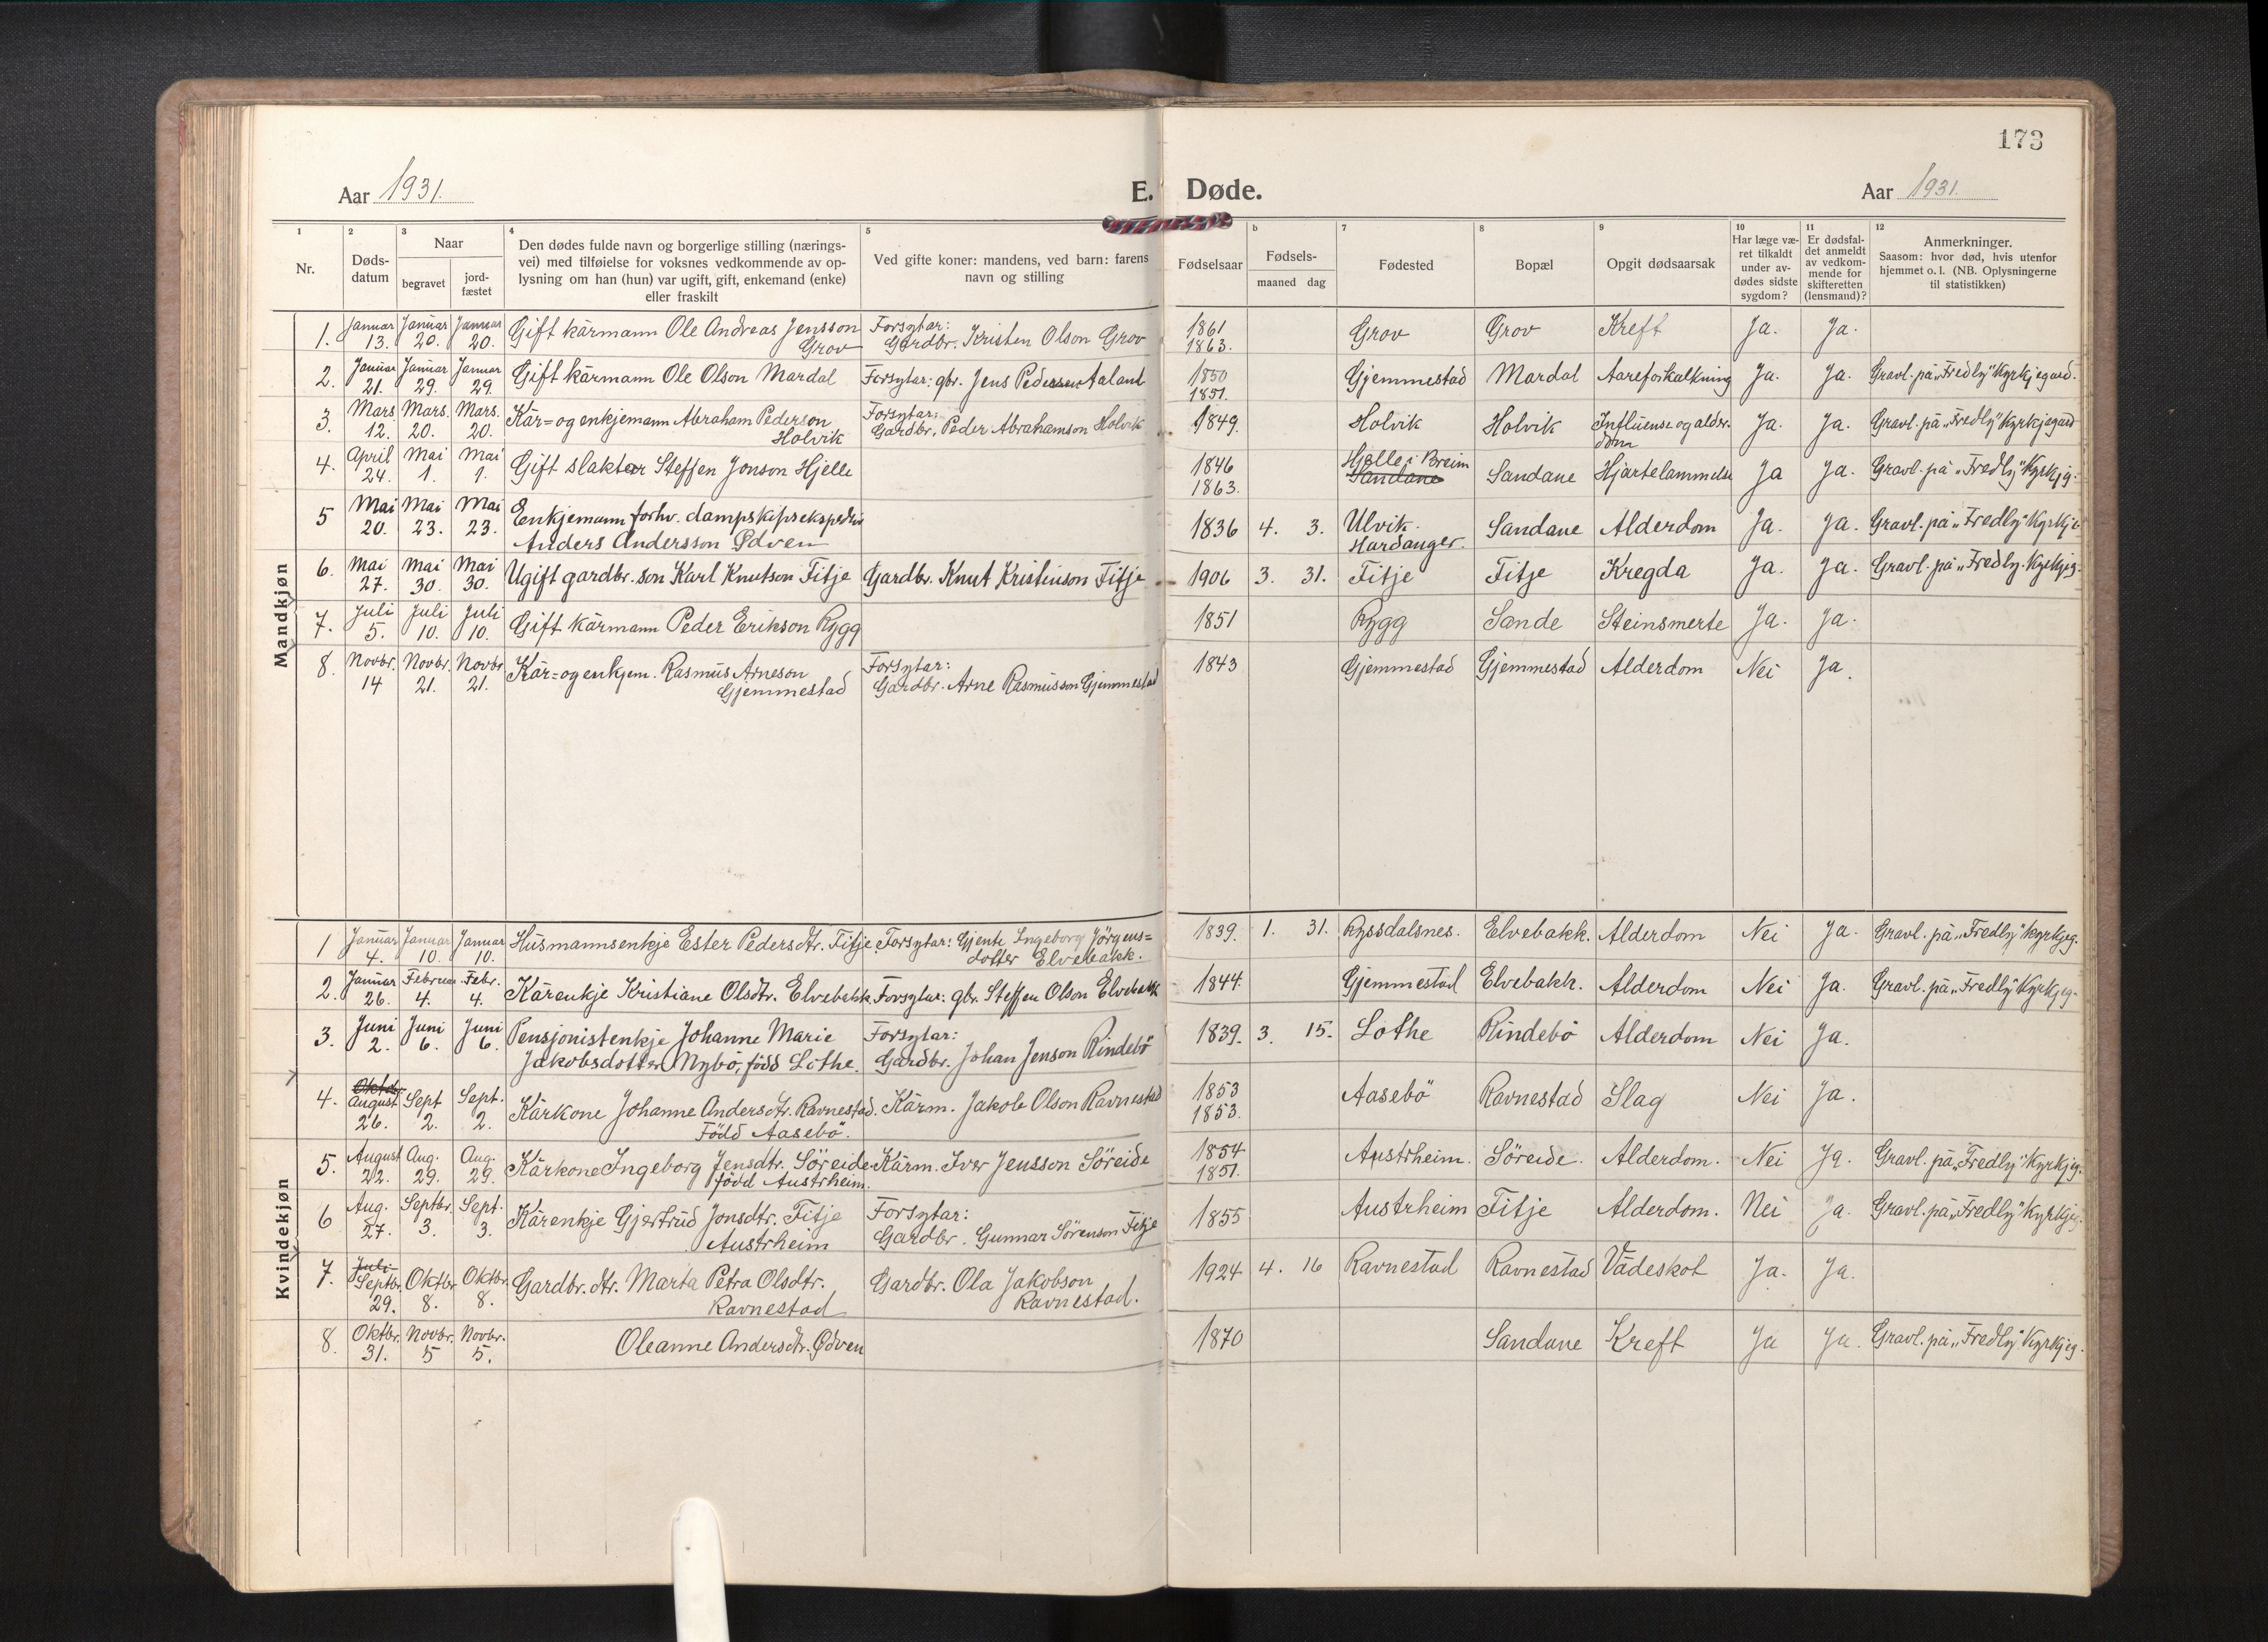 173
Aar 1931.
E. Døde.
Aar 1931.
1 2 3 4 5 6 7 8 9 10 11 12
Nr.
Døds-
datum
Naar
begravet
jord-
fæstet
Den dødes fulde navn og borgerlige stilling (nærings-
vei) med tilføielse for voksnes vedkommende av op-
lysning om han (hun) var ugift, gift, enkemand (enke)
eller fraskilt
Ved gifte koner: mandens, ved barn: farens
navn og stilling
Fødselsaar
Fødsels-
maaned dag
Fødested
Bopæl
Opgit dødsaarsak
Har læge væ-
ret tilkaldt
under av-
dødes sidste
sygdom?
Er dødsfal-
det anmeldt
av vedkom-
mende for
skifteretten
(lensmand)?
Anmerkninger.
Saasom: hvor død, hvis utenfor
hjemmet o. l. (NB. Oplysningerne
til statistikken)
Mandkjøn
1. Januar Januar Januar Gift kårmann Ole Andreas Jensson Forsytar: 1861 Grov Grov Kreft Ja. Ja.
13. 20. 20. Grov Gardbr. Kristen Olson Grov 1863.
2. Januar Januar Januar Gift kårmann Ole Olson Mardal Forsytar: gbr. Jens Pederssen Aaland 1850 Gjemmestad Mardal Aareforkalkning Ja. Ja. Gravl. på „Fredly" Kyrkjegard.
21. 29. 29. 1851.
3. Mars Mars. Mars. Kår- og enkjemann Abraham Pederson Forsytar: 1849. Holvik Holvik Influense og alder- Ja. Ja. Gravl. på „Fredly" Kyrkjegard
12. 20. 20. Holvik Gardbr. Peder Abrahamson Holvik dom
4. April Mai Mai Gift slaktar Steffen Jonson Hjelle 1846 Hjelle i Breim Sandane Hjartelammelse Ja Ja. Gravl. på „Fredly" Kyrkjg.
24. 1. 1. 1863. Sandane
5 Mai Mai Mai Enkjemann forhv. dampskipsekspeditør 1836 4. 3. Ulvik. Sandane Alderdom Ja. Ja. Gravl. på „Fredly" Kyrkje
20. 23. 23. Anders Andersson Ødven Hardanger.
6. Mai Mai Mai Ugift gardbr. son Karl Knutson Fitje Gardbr. Knut Kristenson Fitje 1906 3. 31. Fitje Fitje Kregda Ja. Ja. Gravl. på „Fredly. Kyrkjeg.
27. 30. 30.
7. Juli Juli Juli Gift kårmann Peder Erikson Rygg 1851 Rygg Sande Steinsmerte Ja. Ja.
5. 10. 10.
8. Novbr. Novbr. Novbr Kår- og enkjem. Rasmus Arneson Forsytar: 1843 Gjemmestad Gjemmestad Alderdom Nei Ja.
14 21. 21. Gjemmestad Gardbr. Arne Rasmusson Gjemmestad
Kvindekjøn
1 Januar Januar Januar Husmannsenkje Ester Pedersdtr. Fitje Forsytar: Gjente Ingeborg Jörgens- 1839. 1. 31. Ryssdalsnes. Elvebakk. Alderdom Nei Ja. Gravl. på „Fredly" kyrkjeg.
4. 10. 10. dotter Elvebakk.
2. Januar Februar Febr. Kårenkje Kristiane Olsdtr. Elvebakk Forsytar: gbr. Steffen Olson Elvebakk 1844. Gjemmestad Elvebakk. Alderdom Nei Ja. Gravl. på „Fredly" Kyrkjeg.
26. 4. 4.
3. Juni Juni Juni Pensjonistenkje Johanne Marie Forsytar: 1839. 3. 15. Lothe Rindebö Alderdom Nei Ja.
2. 6. 6. Jakobsdotter Nybö, född Lothe. Gardbr. Johan Jenson Rindebö
4. Oktbr. August Sept Sept. Kårkone Johanne Andersdtr. Ravnestad. Kårm. Jakob Olson Ravnestad 1853 Aasebö Ravnestad Slag Nei Ja.
26. 2. 2. Född Aasebö. 1853.
5. August Aug. Aug. Kårkone Ingeborg Jensdtr. Söreide Kårm. Iver Jensson Söreide 1854 Austrheim. Söreide. Alderdom. Nei Ja. Gravl. på „Fredly" Kyrkjeg.
22. 29. 29. född Austrheim. 1851.
6 Aug. Septbr. Sept. Kårenkje Gjertrud Jonsdtr. Fitje Forsytar: 1855 Austrheim Fitje Alderdom. Nei Ja. Gravl. på „Fredly" Kyrkjeg.
27. 3. 3. Austrheim Gardbr. Gunnar Sörenson Fitje
7. Juli Septbr. Oktbr Oktbr. Gardbr. dtr. Marta Petra Olsdtr. Gardbr. Ola Jakobson 1924 4. 16 Ravnestad Ravnestad Vådeskot Ja. Ja.
29. 8. 8. Ravnestad Ravnestad.
8. Oktbr. Novbr. Novbr. Oleanne Andersdtr. Ødven 1870 Sandane Kreft Ja Ja. Gravl. på „Fredly" Kyrkjeg.
31. 5 5.